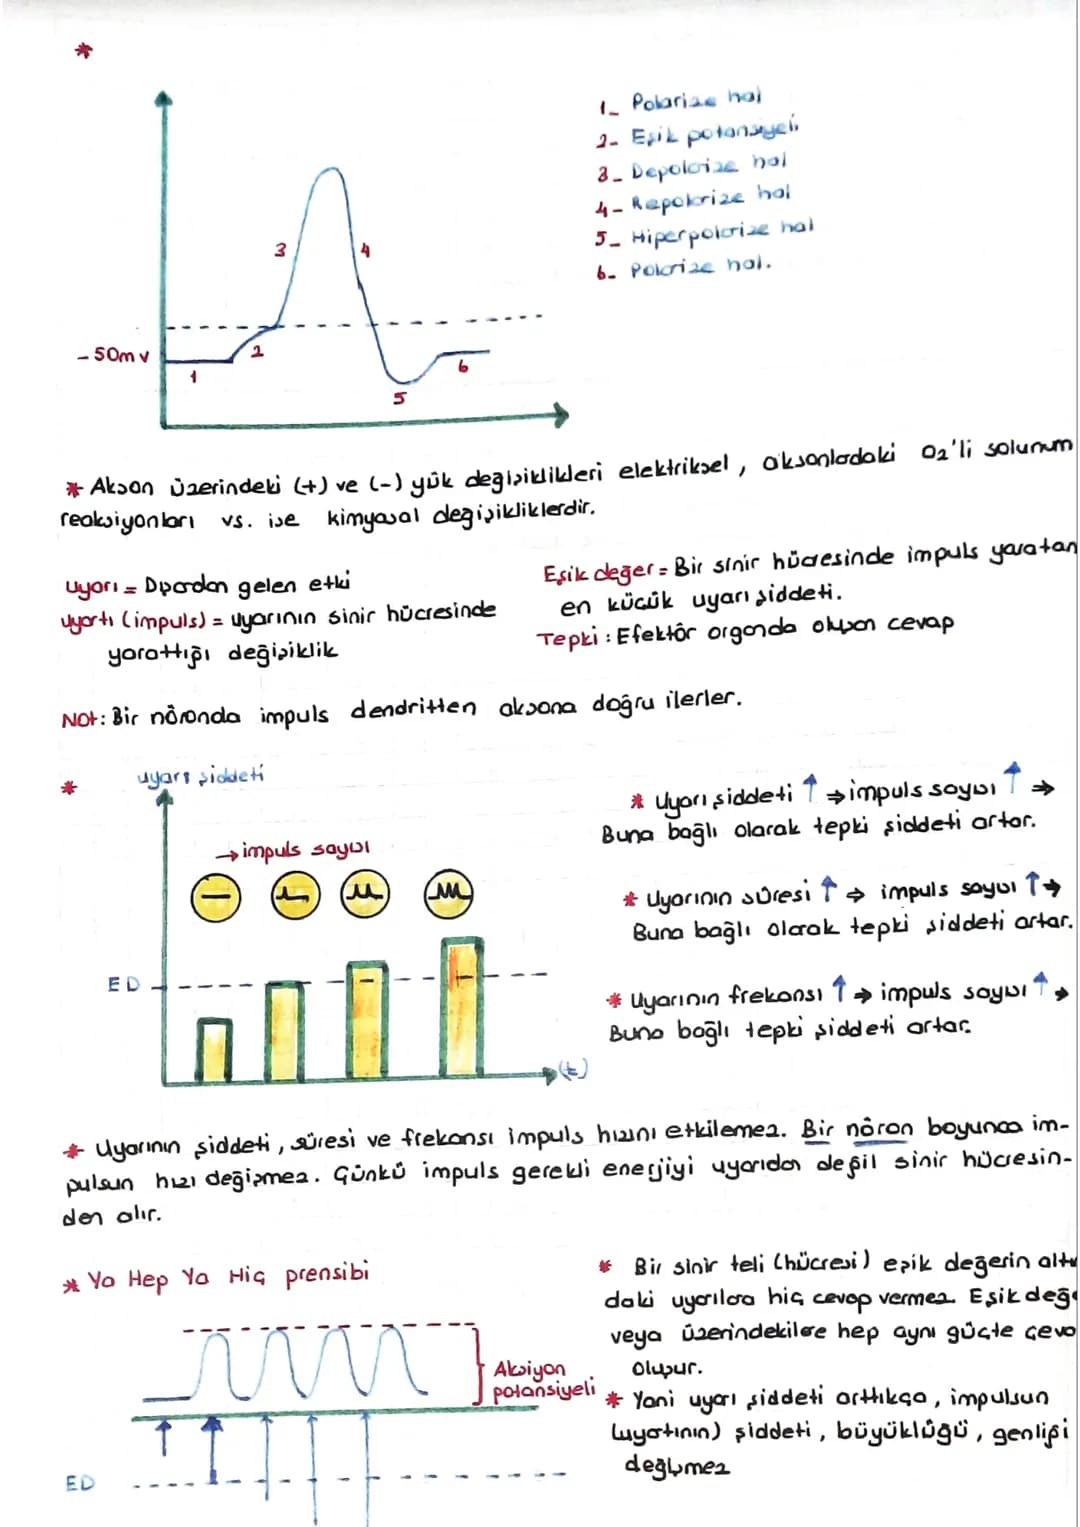 *
1- Polarize hal
2- Eşik potansiyeli
3- Depolarize hal
4- Repolarize hal
5- Hiperpolarize hal
6- Polarize hal.
3
4
- 50mv
1
2
5
6
* Akson üzerindeki (+) ve (-) yük değişiklikleri elektriksel, aksonlardaki O2'li solunum
reaksiyonları vs. ise kimyasal değişikliklerdir.
Uyarı = Dışardan gelen etki
uyartı (impuls) = uyarının sinir hücresinde
yarattığı değişiklik
Eşik değer = Bir sinir hücresinde impuls yaratan
en küçük uyarı şiddeti.
Tepki : Efektör organda oluşan cevap
Not: Bir nöronda impuls dendritten aksona doğru ilerler.
*
uyarı şiddeti
→ impuls sayısı
ED
(t)
* Uyarı şiddeti ↑ → impuls sayısı ↑ →
Buna bağlı olarak tepki şiddeti artar.
* Uyarının süresi ↑ → impuls sayısı ↑ →
Buna bağlı olarak tepki şiddeti artar.
* Uyarının frekansı ↑ → impuls sayısı ↑ →
Buna bağlı tepki şiddeti artar.
* Uyarının şiddeti, süresi ve frekansı impuls hızını etkilemez. Bir nöron boyunca im-
pulsun hızı değişmez. Çünkü impuls gerekli enerjiyi uyarıdan değil sinir hücresin-
den alır.
* Ya Hep Ya Hiç prensibi
Aksiyon
potansiyeli
ED
* Bir sinir teli (hücresi) eşik değerin altı
daki uyarılara hiç cevap vermez. Eşik değe
veya üzerindekilere hep aynı güçte ceva
oluşur.
* Yani uyarı şiddeti arttıkça, impulsun
(uyartının) şiddeti, büyüklüğü, genliği
değişmez